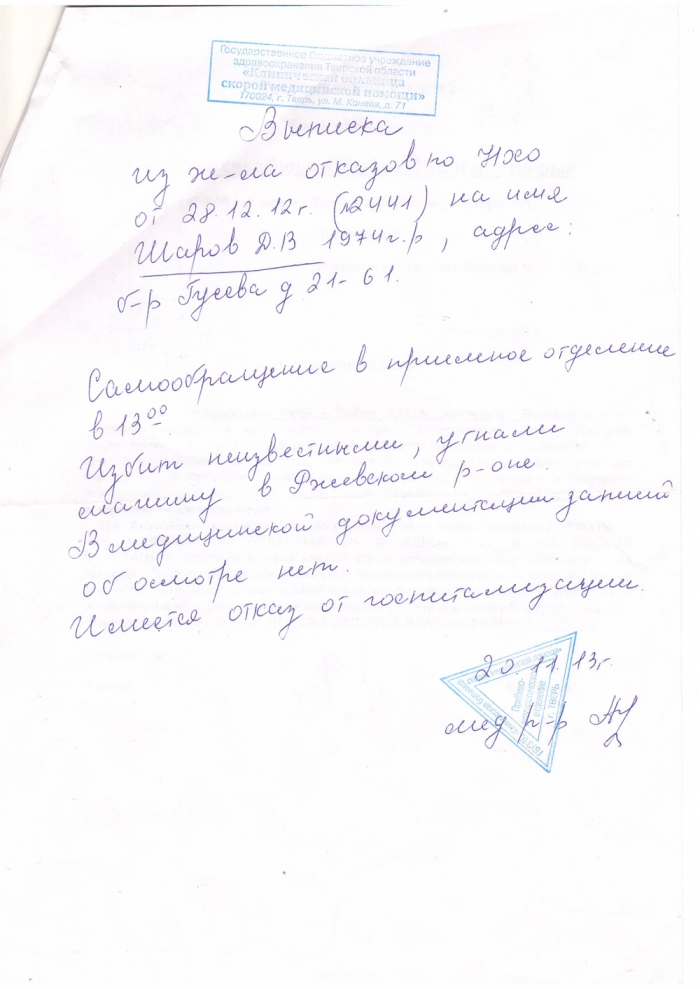 Государственное бюджетное учреждение
здравоохранения Тверской области
«Клиническая больница
скорой медицинской помощи»
170024, г. Тверь, ул. М. Конева, д. 71
Выписка
из ж-ла отказов по НХО
от 28.12.12г. (№2441) на имя
Шаров Д.В 1974г.р, адрес:
б-р Гусева д 21-61.
Самообращение в приемное отделение
в 13⁰⁰
Избит неизвестными, угнали
машину в Ржевском р-оне.
В медицинской документации записей
об осмотре нет.
Имеется отказ от госпитализации.
20.11.13г.
мед р-р
г. ТВЕРЬ